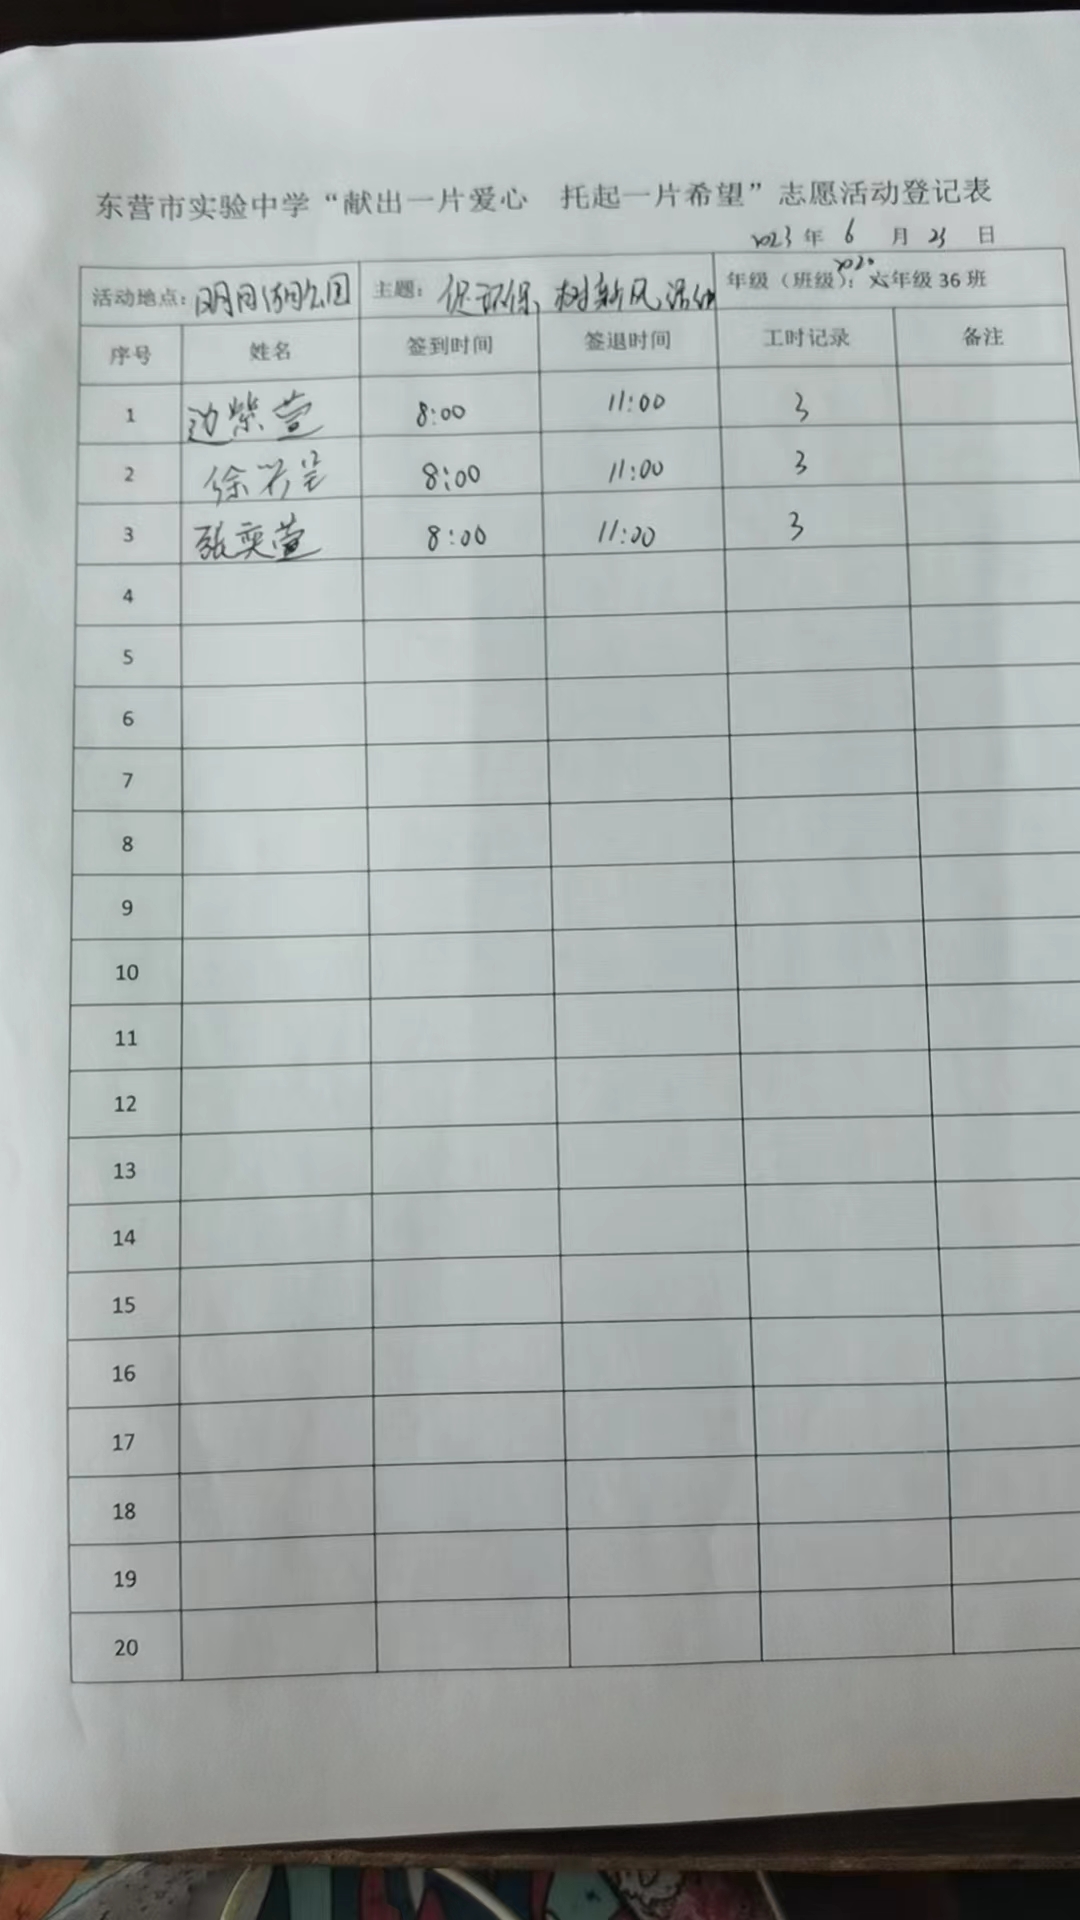 东营市实验中学“献出一片爱心　托起一片希望”志愿活动登记表
2023 年 6 月 23 日
活动地点：明月湖公园 主题：促环保、树新风活动 年级（班级）：2020 六年级 36 班
序号 姓名 签到时间 签退时间 工时记录 备注
1 边紫萱 8:00 11:00 3
2 徐 8:00 11:00 3
3 张奕萱 8:00 11:00 3
4
5
6
7
8
9
10
11
12
13
14
15
16
17
18
19
20